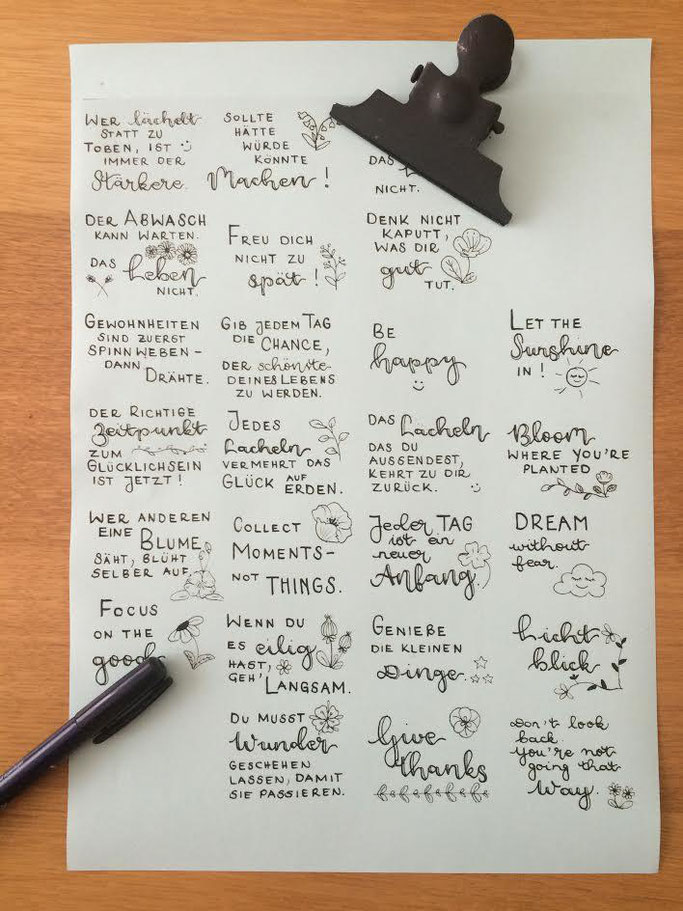 WER lächelt
STATT ZU
TOBEN, IST
IMMER DER
Stärkere.
SOLLTE
HÄTTE
WÜRDE
KÖNNTE
Machen!
DAS
NICHT.
DER ABWASCH
KANN WARTEN.
DAS Leben
NICHT.
FREU DICH
NICHT ZU
spät!
DENK NICHT
KAPUTT,
WAS DIR
gut
TUT.
GEWOHNHEITEN
SIND ZUERST
SPINNWEBEN-
DANN
DRÄHTE.
GIB JEDEM TAG
DIE CHANCE,
DER schönste
DEINES LEBENS
ZU WERDEN.
BE
happy
LET THE
Sunshine
IN!
DER RICHTIGE
Zeitpunkt
ZUM
GLÜCKLICHSEIN
IST JETZT!
JEDES
Lächeln
VERMEHRT DAS
GLÜCK AUF
ERDEN.
DAS Lächeln
DAS DU
AUSSENDEST,
KEHRT ZU DIR
ZURÜCK.
Bloom
WHERE YOU'RE
PLANTED
WER ANDEREN
EINE BLUME
SÄHT, BLÜHT
SELBER AUF.
COLLECT
MOMENTS-
NOT THINGS.
Jeder TAG
ist ein
neuer
Anfang.
DREAM
without
fear.
FOCUS
ON THE
good
WENN DU
ES eilig
HAST,
GEH'
LANGSAM.
GENIEßE
DIE KLEINEN
Dinge.
Licht
blick
DU MUSST
Wunder
GESCHEHEN
LASSEN, DAMIT
SIE PASSIEREN.
Give
thanks
Don't look
back.
you're not
going that
way.